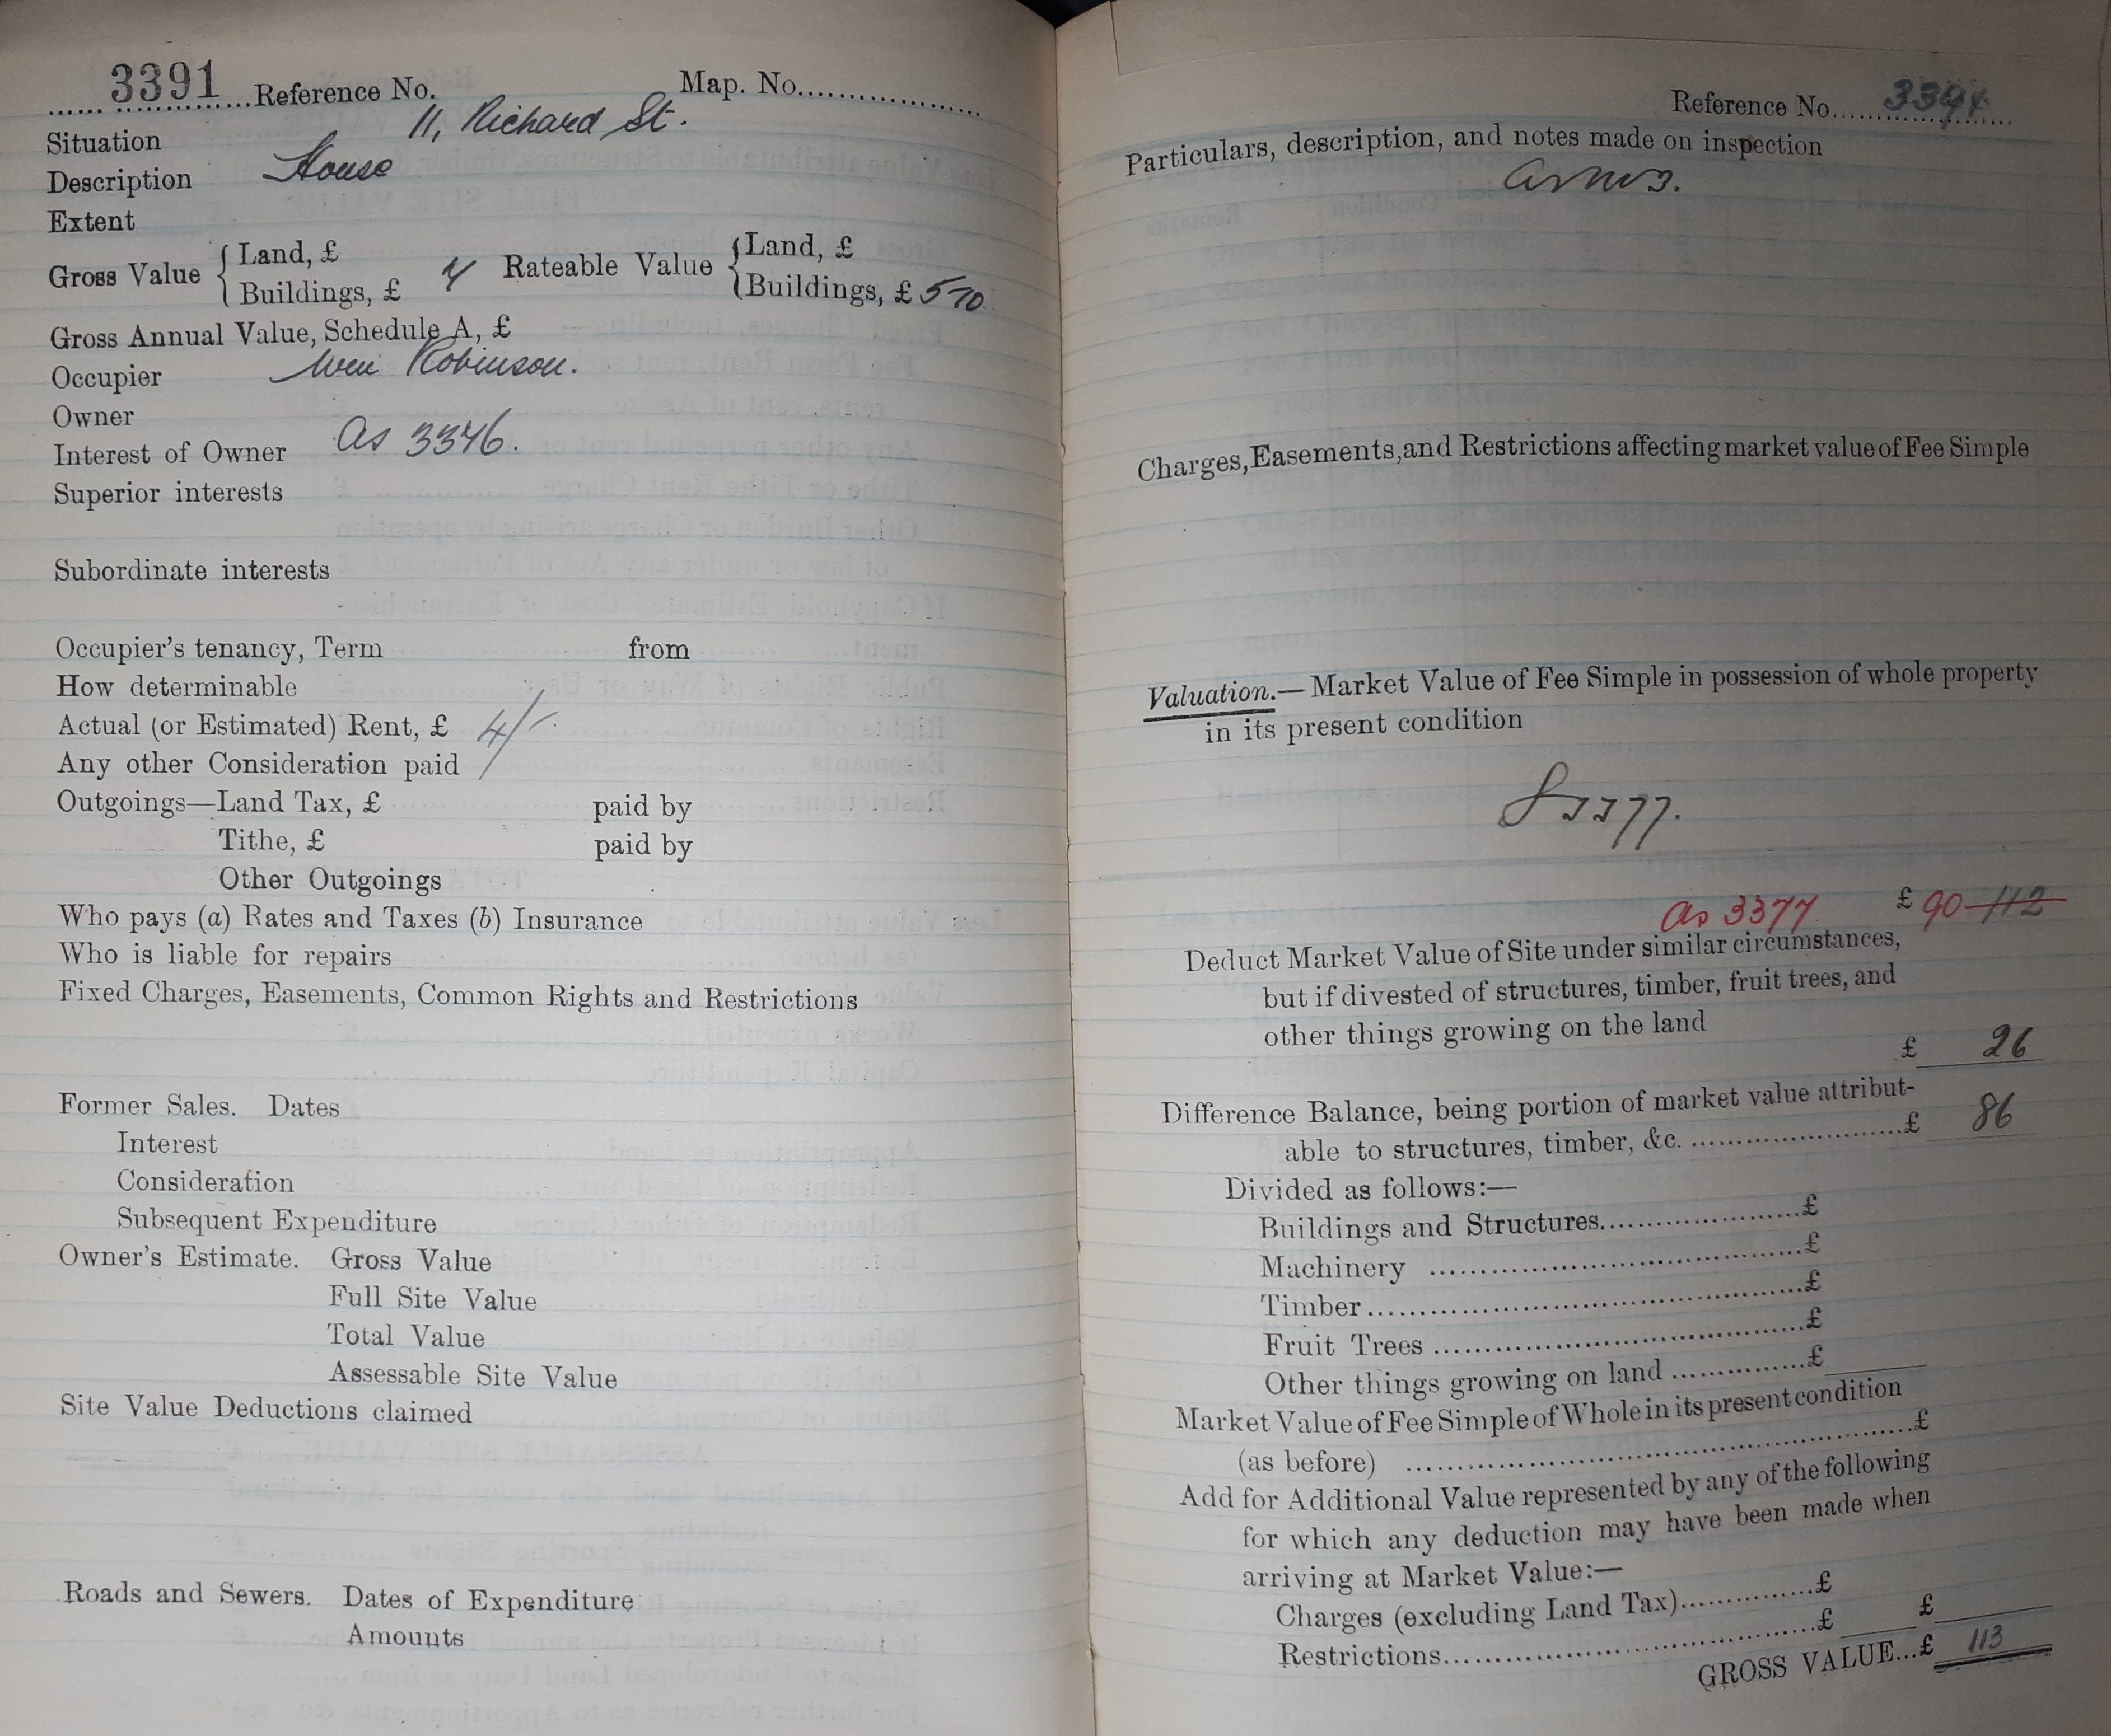 3391 Reference No. Map. No.
Situation 11, Richard St.
Description House
Extent
Gross Value { Land, £ Rateable Value { Land, £
Buildings, £ Buildings, £ 5/10
Gross Annual Value, Schedule A, £
Occupier Wm Robinson.
Owner
Interest of Owner As 3376.
Superior interests
Subordinate interests
Occupier's tenancy, Term from
How determinable
Actual (or Estimated) Rent, £ 4/-
Any other Consideration paid
Outgoings—Land Tax, £ paid by
Tithe, £ paid by
Other Outgoings
Who pays (a) Rates and Taxes (b) Insurance
Who is liable for repairs
Fixed Charges, Easements, Common Rights and Restrictions
Former Sales. Dates
Interest
Consideration
Subsequent Expenditure
Owner's Estimate. Gross Value
Full Site Value
Total Value
Assessable Site Value
Site Value Deductions claimed
Roads and Sewers. Dates of Expenditure
Amounts
Reference No. 3391
Particulars, description, and notes made on inspection
Charges, Easements, and Restrictions affecting market value of Fee Simple
Valuation.—Market Value of Fee Simple in possession of whole property
in its present condition
As 3377 £ 90 112
Deduct Market Value of Site under similar circumstances,
but if divested of structures, timber, fruit trees, and
other things growing on the land
£ 26
Difference Balance, being portion of market value attribut-
able to structures, timber, &c. £ 86
Divided as follows:—
Buildings and Structures £
Machinery £
Timber £
Fruit Trees £
Other things growing on land £
Market Value of Fee Simple of Whole in its present condition
(as before) £
Add for Additional Value represented by any of the following
for which any deduction may have been made when
arriving at Market Value:—
Charges (excluding Land Tax) £
Restrictions £ £
GROSS VALUE...£ 113